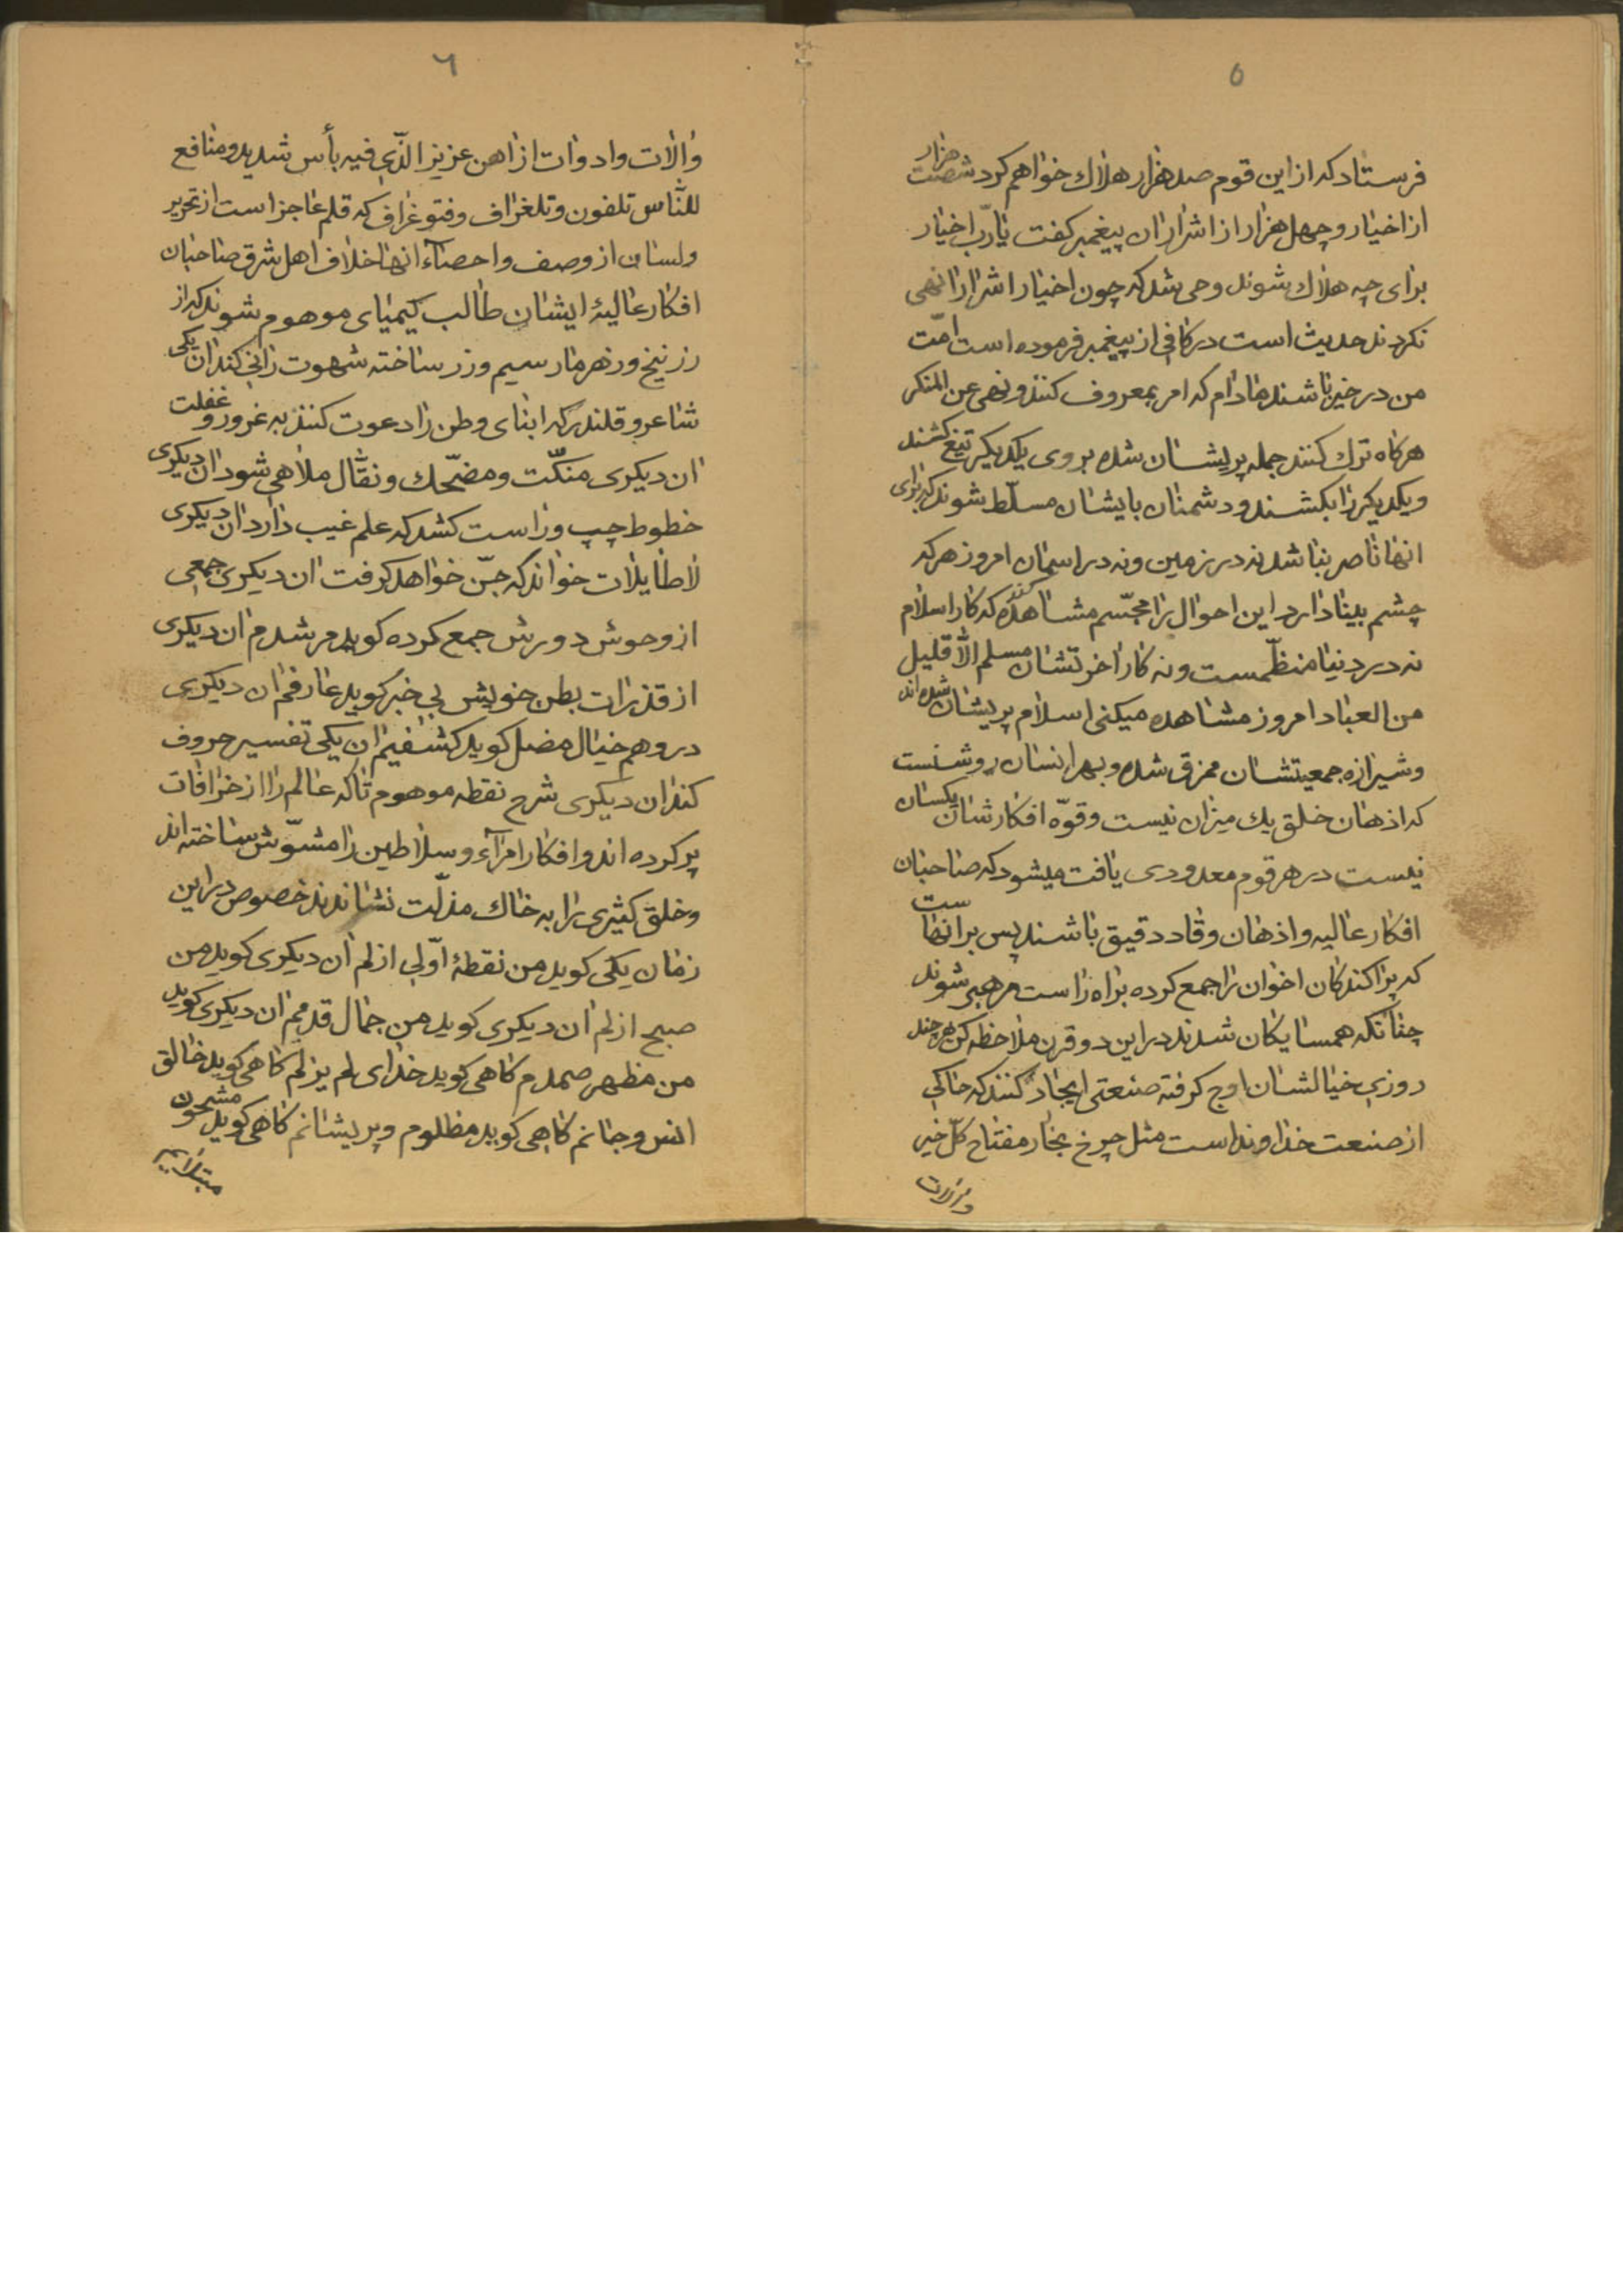 ٥
فرستاد كه از اين قوم صد هزار هلاك خواهم كرد شصت هزار
از اخيار و چهل هزار از اشرار ان پيغمبر كفت يا ربّ اخيار
براى چه هلاك شوند وحى شد كه چون اخيار اشرار را نهى
نكردند حديث است در كافى از پيغمبر فرموده است امّت
من در خير باشند مادام كه امر بمعروف كنند و نهى عن المنكر
هركاه ترك كنند جمله پريشان شده بروى يكديكر تيغ كشند
و يكديكر را بكشند و دشمنان بايشان مسلّط شوند كه براى
انها ناصر نباشد نه در زمين و نه در اسمان امروز هر كه
چشم بينا دارد اين احوال را مجسّم مشاهده كند كه كار اسلام
نه در دنيا منظّمست و نه كار اخرتشان مسلم الّا قليل
من العباد امروز مشاهده ميكنى اسلام پريشان شده اند
و شيرازه جمعيتشان ممزق شده و بهر انسان روشنست
كه اذهان خلق يك ميزان نيست و قوّه افكارشان يكسان
نيست در هر قوم معدودى يافت ميشود كه صاحبان
افكار عاليه و اذهان وقاد دقيق باشند پس بر انها ست
كه پراكندكان اخوان را جمع كرده براه راست رهبر شوند
چنانكه همسايكان شدند در اين دو قرن ملاحظه كن هر چند
روزى خيالشان اوج كرفته صنعتى ايجاد كنند كه حاكى
از صنعت خداونداست مثل چرخ بخار مفتاح كلّ خير
٦
والات وادوات از اهن عزيز الّذى فيه بأس شديد ومنافع
للنّاس تلفون و تلغراف و فتوغراف كه قلم عاجز است از تحرير
ولسان از وصف واحصاء انها خلاف اهل شرق صاحبان
افكار عاليۀ ايشان طالب كيمياى موهوم شوند كه از
زرنيخ و زهر مار سيم و زر ساخته شهوت رانى كند ان يكى
شاعر و قلندر كه ابناى وطن را دعوت كنند به غرور و غفلت
ان ديكرى منكّت و مضحّك و نقّال ملاهى شود ان ديكرى
خطوط چپ و راست كشد كه علم غيب دارد ان ديكرى
لاطايلات خواند كه جنّ خواهد كرفت ان ديكرى جمعى
از وحوش دورش جمع كرده كويد مرشدم ان ديكرى
از قذرات بطن خويش بى خبر كويد عارفم ان ديكرى
در وهم خيال مضل كويد كشفيم ان يكى تفسير حروف
كند ان ديكرى شرح نقطه موهوم تا كه عالم را از خرافات
پر كرده اند و افكار امراء و سلاطين را مشوّش ساخته اند
و خلق كثيرى را به خاك مذلّت نشاندند خصوص در اين
زمان يكى كويد من نقطۀ اوّلى ازلم ان ديكرى كويد من
صبح ازلم ان ديكرى كويد من جمال قدمم ان ديكرى كويد
من مظهر صمدم كاهى كويد خداى لم يزلم كاهى كويد خالق
انس و جانم كاهى كويد مظلوم و پريشانم كاهى كويد مشحون